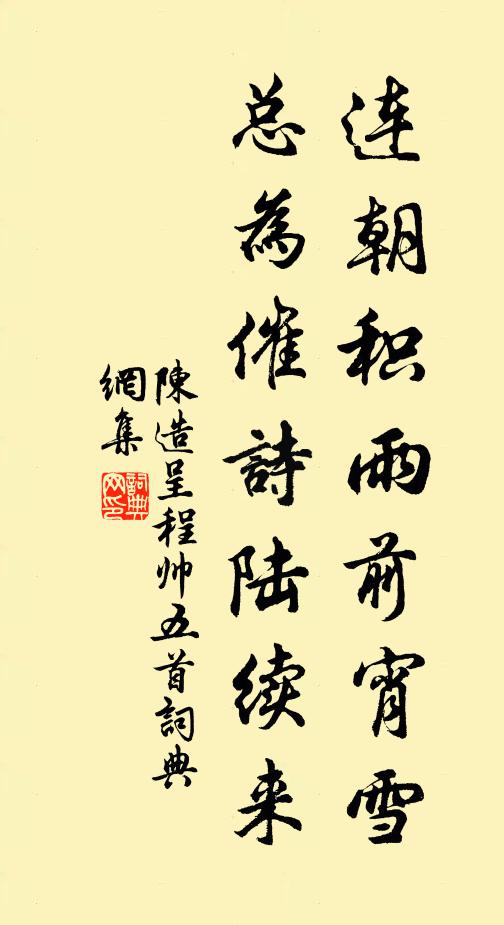 连朝积雨前宵雪
总為催詩陆续来
陳造呈程帅五首詞典
網集
詞典网印